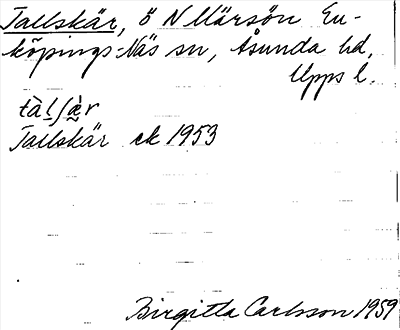 Tallskär, ö N Märsön En-
köpings-Näs sn, Åsunda hd,
Upps l.
tàlʃæ̀r
Tallskär ek 1953
Birgitta Carlsson 1959